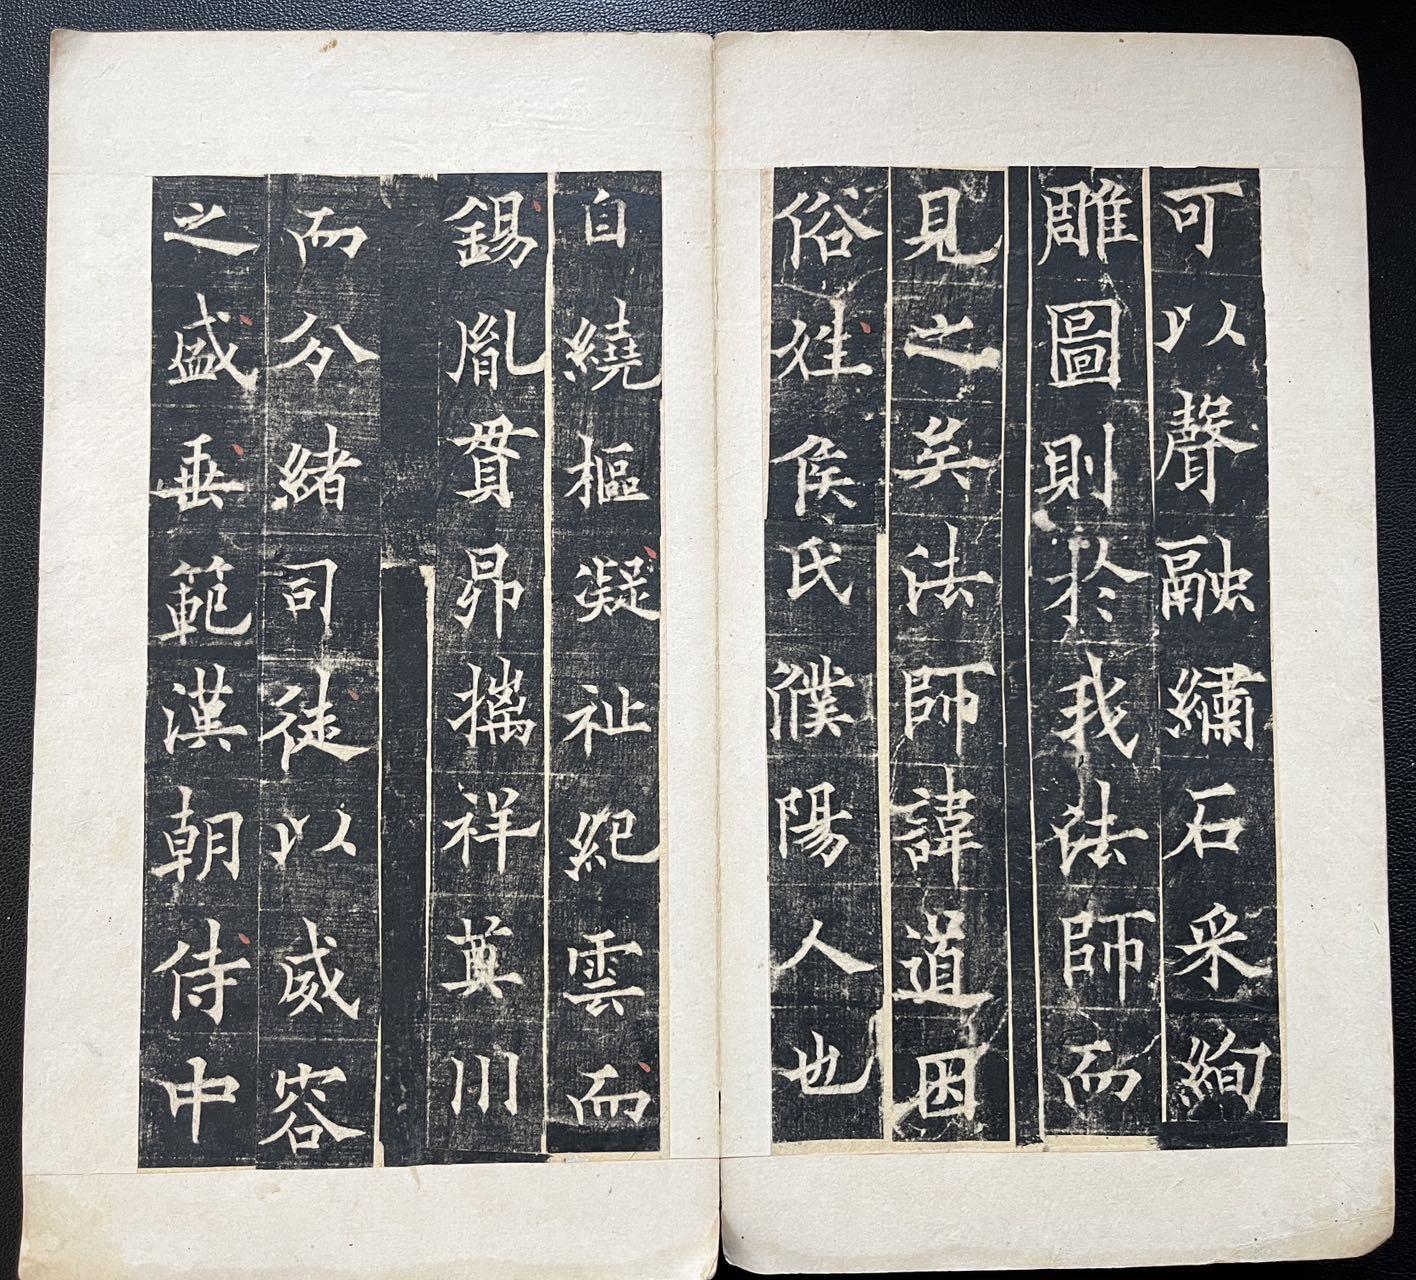 可以聲融繡石采絢
雕圖則於我法師而
見之矣法師諱道因
俗姓侯氏濮陽人也
自繞樞凝祉紀雲而
錫胤貫昴摛祥蓂川
而分緒司徒以威容
之盛垂範漢朝侍中